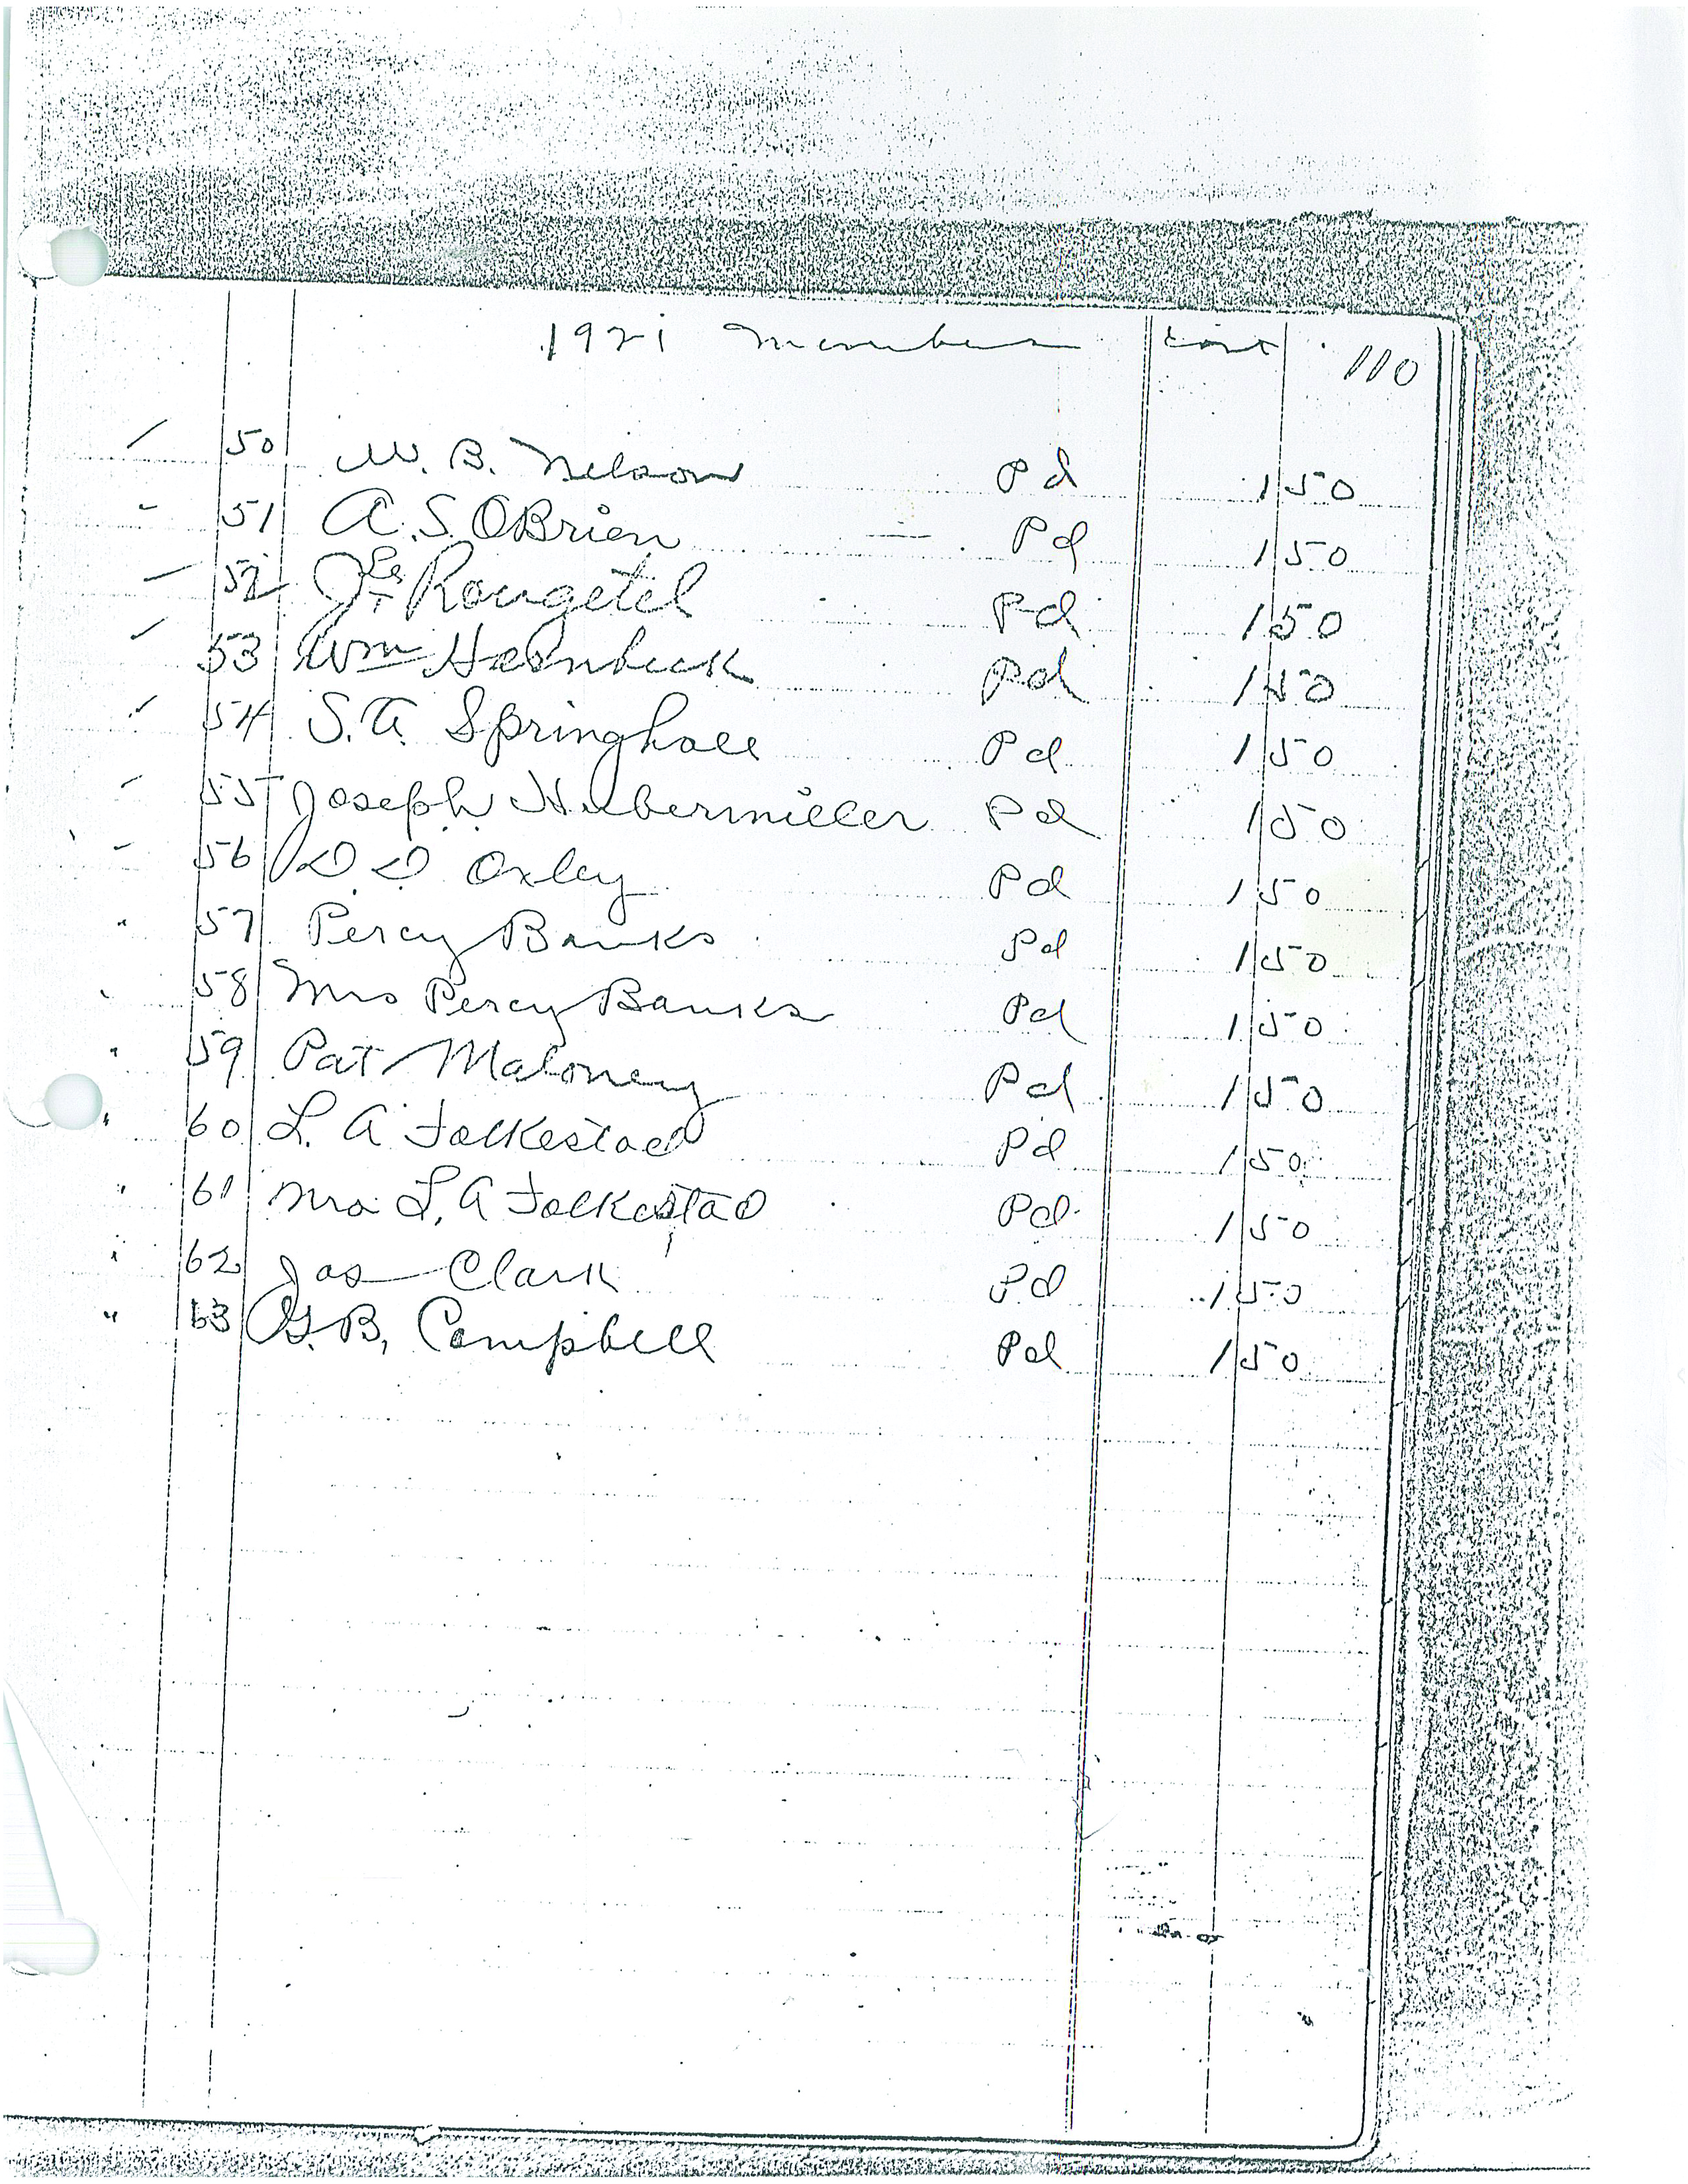 1921 Members cont 110
50 W. B. Nelson Pd 1 50
51 A. S. OBrien Pd 1 50
52 J Le Rougetel Pd 1 50
53 Wm Hornbeck Pd 1 50
54 S. A. Springhall Pd 1 50
55 Joseph Hubermiller Pd 1 50
56 D D Oxley Pd 1 50
57 Percy Banks Pd 1 50
58 Mrs Percy Banks Pd 1 50
59 Pat Maloney Pd 1 50
60 L. A Folkestad Pd 1 50
61 Mrs L. A Folkestad Pd 1 50
62 Jas Clark Pd 1 50
63 G. B. Campbell Pd 1 50